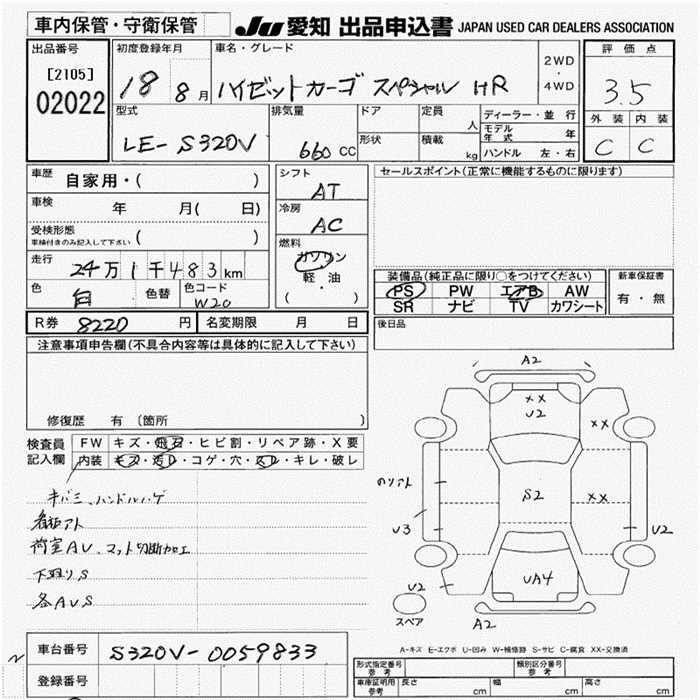 車内保管・守衛保管
JU 愛知 出品申込書 JAPAN USED CAR DEALERS ASSOCIATION
出品番号
[2105]
02022
初度登録年月
18 8月
車名・グレード
ハイゼットカーゴ スペシャル HR
2WD
・
4WD
評価点
3.5
外装 内装
C C
型式
LE-S320V
排気量
660 CC
ドア
形状
定員
人
積載
kg
ディーラー・並行
モデル年式 年
ハンドル 左・右
車歴 自家用・( )
車検 年 月( 日)
受検形態
車検付きのみ記入して下さい ( )
走行 24万1千483km
色 白 色替 色コード W20
シフト
AT
冷房
AC
燃料
ガソリン
軽・油
( )
セールスポイント(正常に機能するものに限ります)
装備品(純正品に限り○をつけてください)
PS PW エアB AW
SR ナビ TV カワシート
新車保証書
有・無
R券 8220 円 名変期限 月 日
後日品
注意事項申告欄(不具合内容等は具体的に記入して下さい)
修復歴 有〔箇所 〕
検査員
記入欄
FW キズ・飛石・ヒビ割・リペア跡・X要
内装 キズ・汚レ・コゲ・穴・スレ・キレ・破レ
キバミ、ハンドルハゲ
看板アト
荷室AU、マット切断加工
下廻りS
各AUS
A2
XX
U2
XX
のリアト
S2
XX
U3
U2
UA4
U2
A2
スペア
A-キズ E-エクボ U-凹み W-補修跡 S-サビ C-腐食 XX-交換済
車台番号 S320V-0059833
登録番号
形式指定番号
参考
類別区分番号
参考
車庫証明用
参考
長さ cm 幅 cm 高さ cm